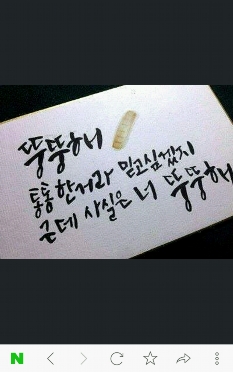 뚱뚱해
통통한거라 믿고싶겠지
근데 사실은 너 뚱뚱해
N